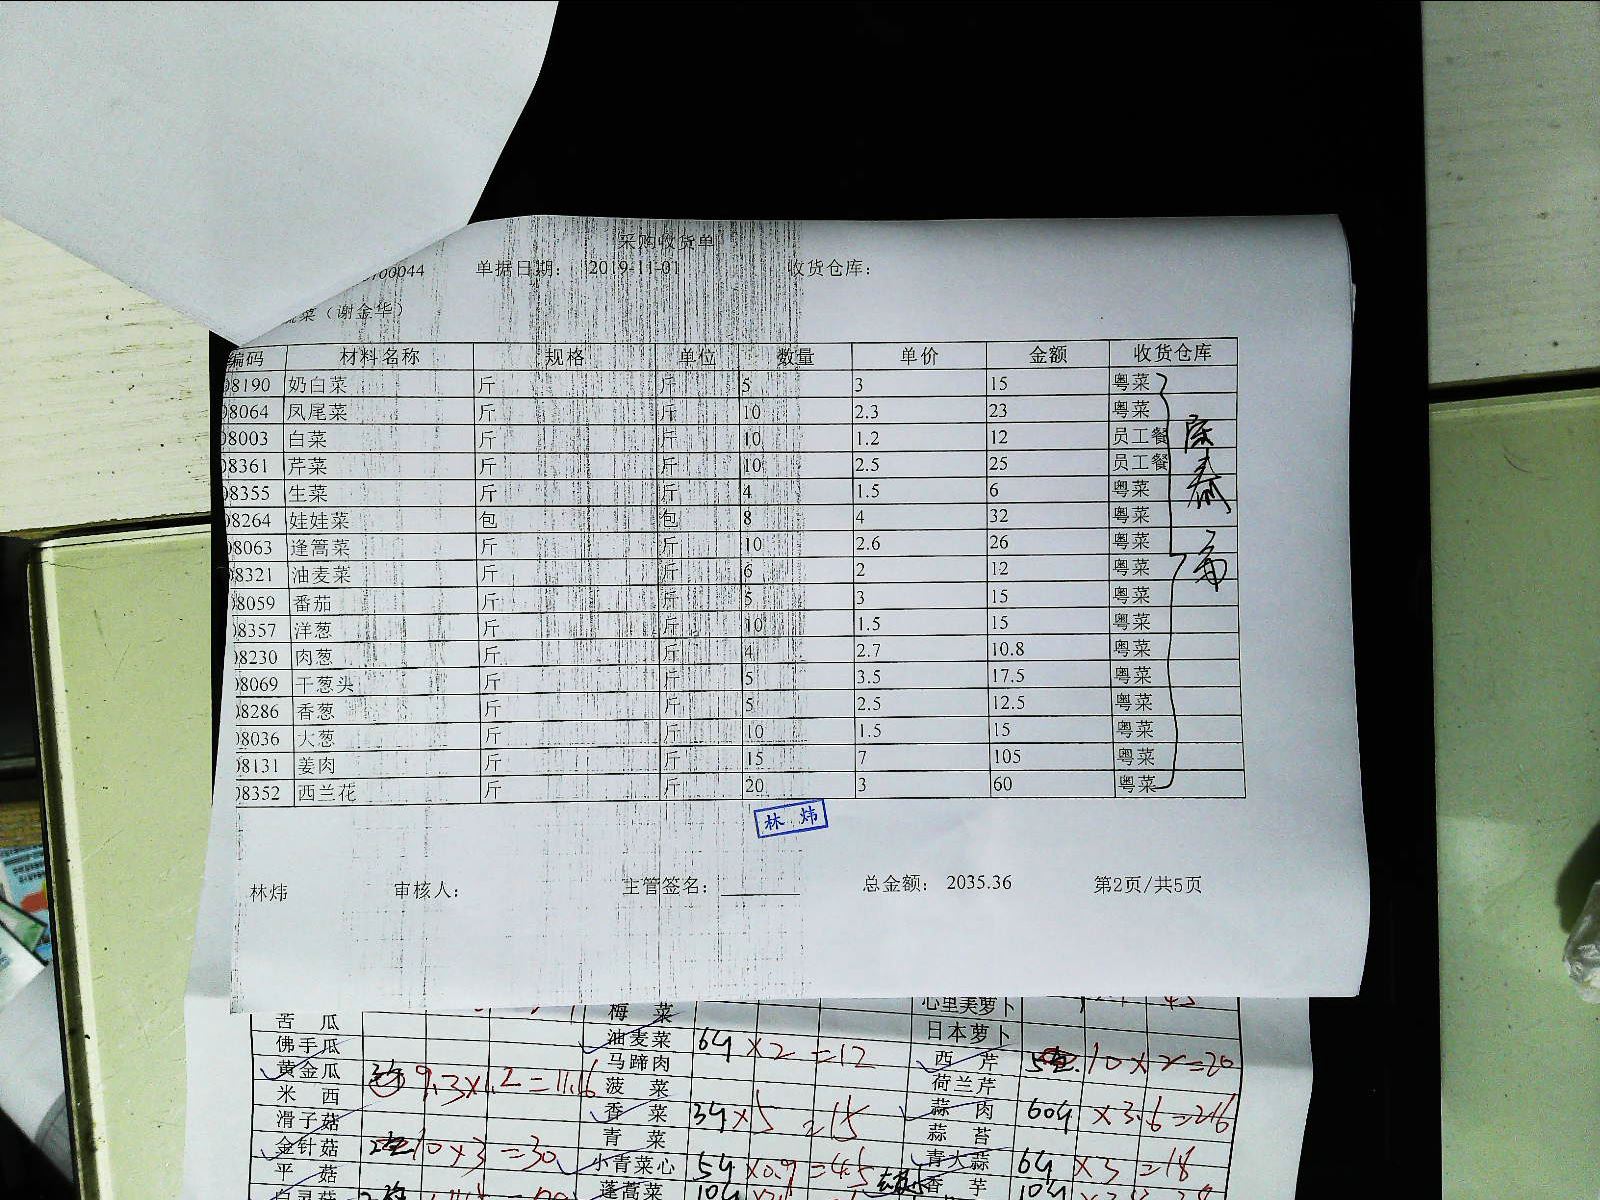 采购收货单
00044 单据日期： 2019-11-01 收货仓库：
蔬菜（谢金华）
编码 材料名称 规格 单位 数量 单价 金额 收货仓库
08190 奶白菜 斤 斤 5 3 15 粤菜
08064 凤尾菜 斤 斤 10 2.3 23 粤菜
08003 白菜 斤 斤 10 1.2 12 员工餐
08361 芹菜 斤 斤 10 2.5 25 员工餐
08355 生菜 斤 斤 4 1.5 6 粤菜
08264 娃娃菜 包 包 8 4 32 粤菜
08063 逢篙菜 斤 斤 10 2.6 26 粤菜
08321 油麦菜 斤 斤 6 2 12 粤菜
08059 番茄 斤 斤 5 3 15 粤菜
08357 洋葱 斤 斤 10 1.5 15 粤菜
08230 肉葱 斤 斤 4 2.7 10.8 粤菜
08069 干葱头 斤 斤 5 3.5 17.5 粤菜
08286 香葱 斤 斤 5 2.5 12.5 粤菜
08036 大葱 斤 斤 10 1.5 15 粤菜
08131 姜肉 斤 斤 15 7 105 粤菜
08352 西兰花 斤 斤 20 3 60 粤菜
林炜
林炜 审核人： 主管签名： 总金额： 2035.36 第2页/共5页
梅菜 心里美萝卜
苦瓜 油麦菜 6斤×2=12 日本萝卜
佛手瓜 马蹄肉 西芹 10×2=20
黄金瓜 9.3×1.2=11.16 菠菜 荷兰芹
米西 香菜 3斤×5=15 蒜肉 60斤×3.6=216
滑子菇 青菜 蒜苔
金针菇 10×3=30 小青菜心 5斤×0.9=4.5 青大蒜 6斤×3=18
平菇 蓬蒿菜 10斤 香芋 10斤